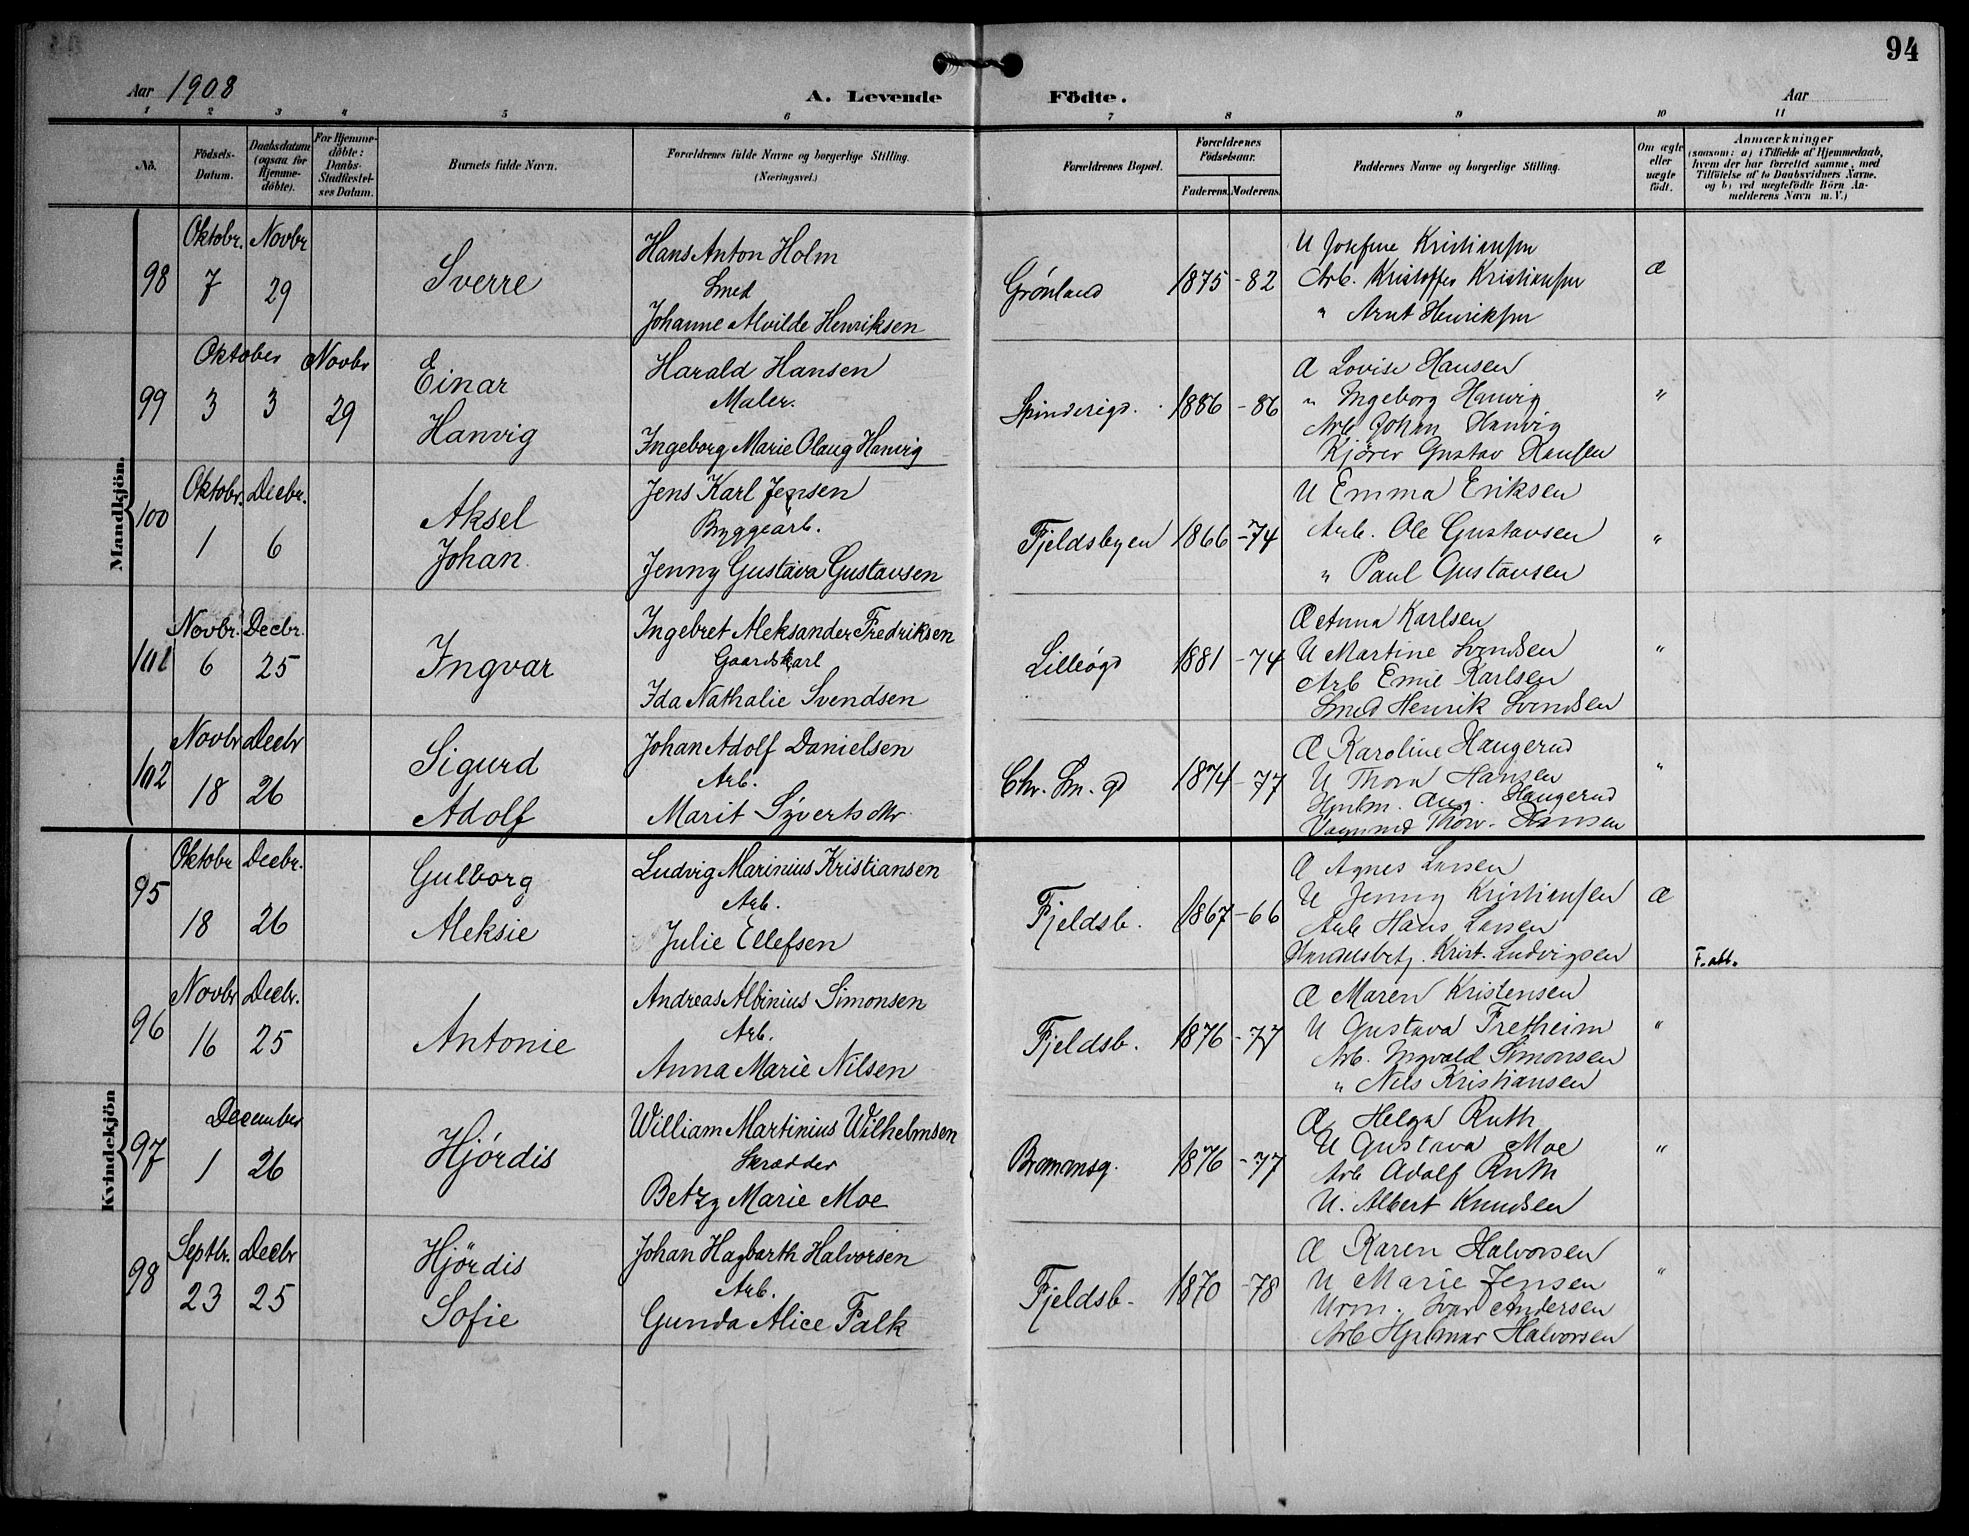 94
Aar 1908
A. Levende Födte.
Aar
1 2 3 4 5 6 7 8 9 10 11
No.
Födsels-Datum.
Daabsdatum (ogsaa for Hjemme-döbte).
For Hjemme-döbte: Daabs-Stadfæstel-ses Datum.
Barnets fulde Navn.
Forældrenes fulde Navne og borgerlige Stilling.
(Næringsvei.)
Forældrenes Bopæl.
Forældrenes Födselsaar.
Faderens. Moderens.
Faddernes Navne og borgerlige Stilling.
Om ægte eller uægte födt.
Anmærkninger
(saasom: a) i Tilfælde af Hjemmedaab,
hvem der har forrettet samme, med
Tilföielse af to Daabsvidners Navne.
og b) ved uægtefödte Börn An-
melderens Navn m. V.)
Mandkjön.
98
Oktobr. 7
Novbr 29
Sverre
Hans Anton Holm
Smed
Johanne Alvilde Henriksen
Grönland
1875 -82
U Josefine Kristiansen
Arb. Kristoffer Kristiansen
" Arnt Henriksen
Æ
99
Oktober
3 3
Novbr 29
Einar
Hanvig
Harald Hansen
Maler.
Ingeborg Marie Olaug Hanvig
Spinderigd.
1886 -86
Æ Lovise Hansen
" Ingeborg Hanvig
Arb Johan Hanvig
Kjörer Gustav Hansen
"
100
Oktobr. 1
Decbr. 6
Aksel
Johan
Jens Karl Jensen
Byggearb.
Jenny Gustava Gustavsen
Fjeldsbyen
1866 -74
U Emma Eriksen
Arb. Ole Gustavsen
" Paul Gustavsen
"
101
Novbr. 6
Decbr. 25
Ingvar
Ingebret Aleksander Fredriksen
Gaardskarl
Ida Nathalie Svendsen
Lilleögd
1881 -74
Æ Anna Karlsen
U Martine Svendsen
Arb Emil Karlsen
Smed Henrik Svendsen
"
102
Novbr 18
Decbr 26
Sigurd
Adolf
Johan Adolf Danielsen
Arb.
Marit Syvertsdtr
Chr. Sm. gd
1874 -77
Æ Karoline Haugerud
U Thora Hansen
Aug. Haugerud
Thorv. Hansen
"
Kvindekjön
95
Oktobr 18
Decbr. 26
Gulborg
Aleksie
Ludvig Marinius Kristiansen
Arb.
Julie Ellefsen
Fjeldsb.
1867 -66
Æ Agnes Larsen
U Jenny Kristiansen
Arb Hans Larsen
Krist. Ludvigsen
Æ
F. att.
96
Novbr 16
Decbr. 25
Antonie
Andreas Albinius Simonsen
Arb.
Anna Marie Nilsen
Fjeldsb.
1876 -77
Æ Maren Kristensen
U Gustava Fretheim
Arb. Ingvald Simonsen
" Nils Kristiansen
"
97
December
1 26
Hjördis
William Martinius Wilhelmsen
Skrædder
Betzy Marie Moe
Bromansg.
1876 -77
Æ Helga Ruth
U Gustava Moe
Arb Adolf Ruth
U. Albert Knudsen
"
98
Septbr. 23
Decbr 25
Hjördis
Sofie
Johan Hagbarth Halvorsen
Arb.
Gunda Alice Falk
Fjeldsb.
1870 -78
Æ Karen Halvorsen
U Marie Jensen
Urm. Ivar Andersen
Arb Hjelmar Halvorsen
"